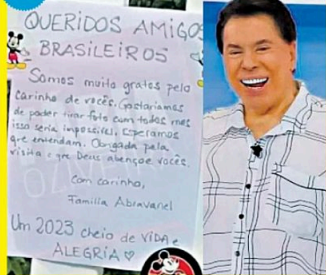 QUERIDOS AMIGOS
BRASILEIROS
Somos muito gratos pelo
carinho de vocês. Gostaríamos
de poder tirar foto com todos mas
isso seria impossível, esperamos
que entendam. Obrigada pela
visita e que Deus abençoe vocês.
Com carinho,
Familia Abravanel
Um 2023 cheio de VIDA e
ALEGRIA ♡